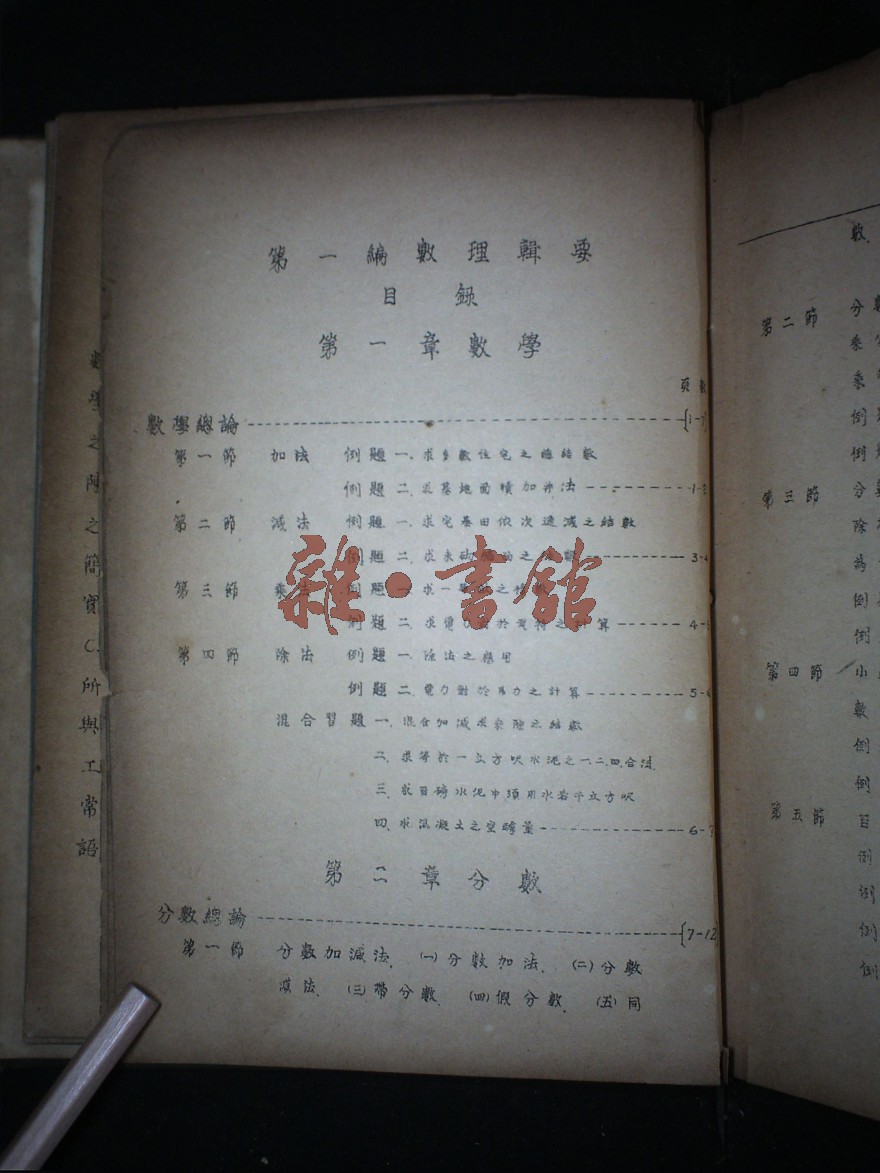 第一編數理輯要
目錄
第一章數學
頁數
數學總論 {1-
第一節 加法 例題一. 求多數住宅之總結數
例題二. 求基地面積加井法 1-
第二節 減法 例題一. 求宅基田依次遞減之結數
例題二. 求未砌 之 3-4
第三節 乘法 例題一. 求一 之
例題二. 求 於 之計算 4-
第四節 除法 例題一. 除法之應用
例題二. 電力對於馬力之計算 5-6
混合習題一. 混合加減求乘除之結數
二. 求等於一立方呎水泥之一.二.四.合法.
三. 求百磅水泥中須用水若干立方呎
四. 求混凝土之空隙量 6-7
第二章分數
分數總論 {7-12
第一節 分數加減法. (一)分數加法. (二)分數
減法. (三)帶分數. (四)假分數. (五)同
數學之 之簡實 所與工常語
數
第二節 分
乘
乘
例
例
第三節 分
除
為
例
例
第四節 小
數
例
例
第五節 百
例
例
例
例
雜·書館